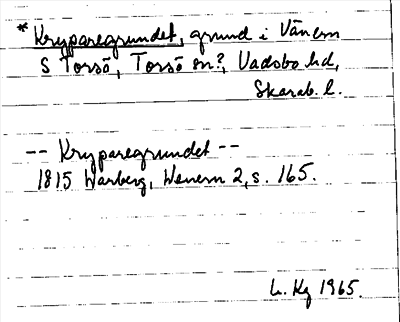 * Kryparegrundet, grund i Vänern
S Torsö, Torsö sn?, Vadsbo hd,
Skarab. l.
-- Kryparegrundet --
1815 Warberg, Wenern 2, s. 165.
L. Kg 1965.